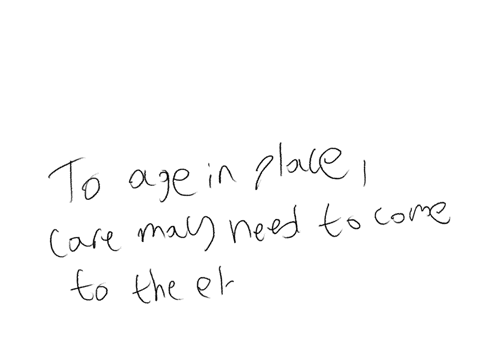 To age in place,
care may need to come
to the el